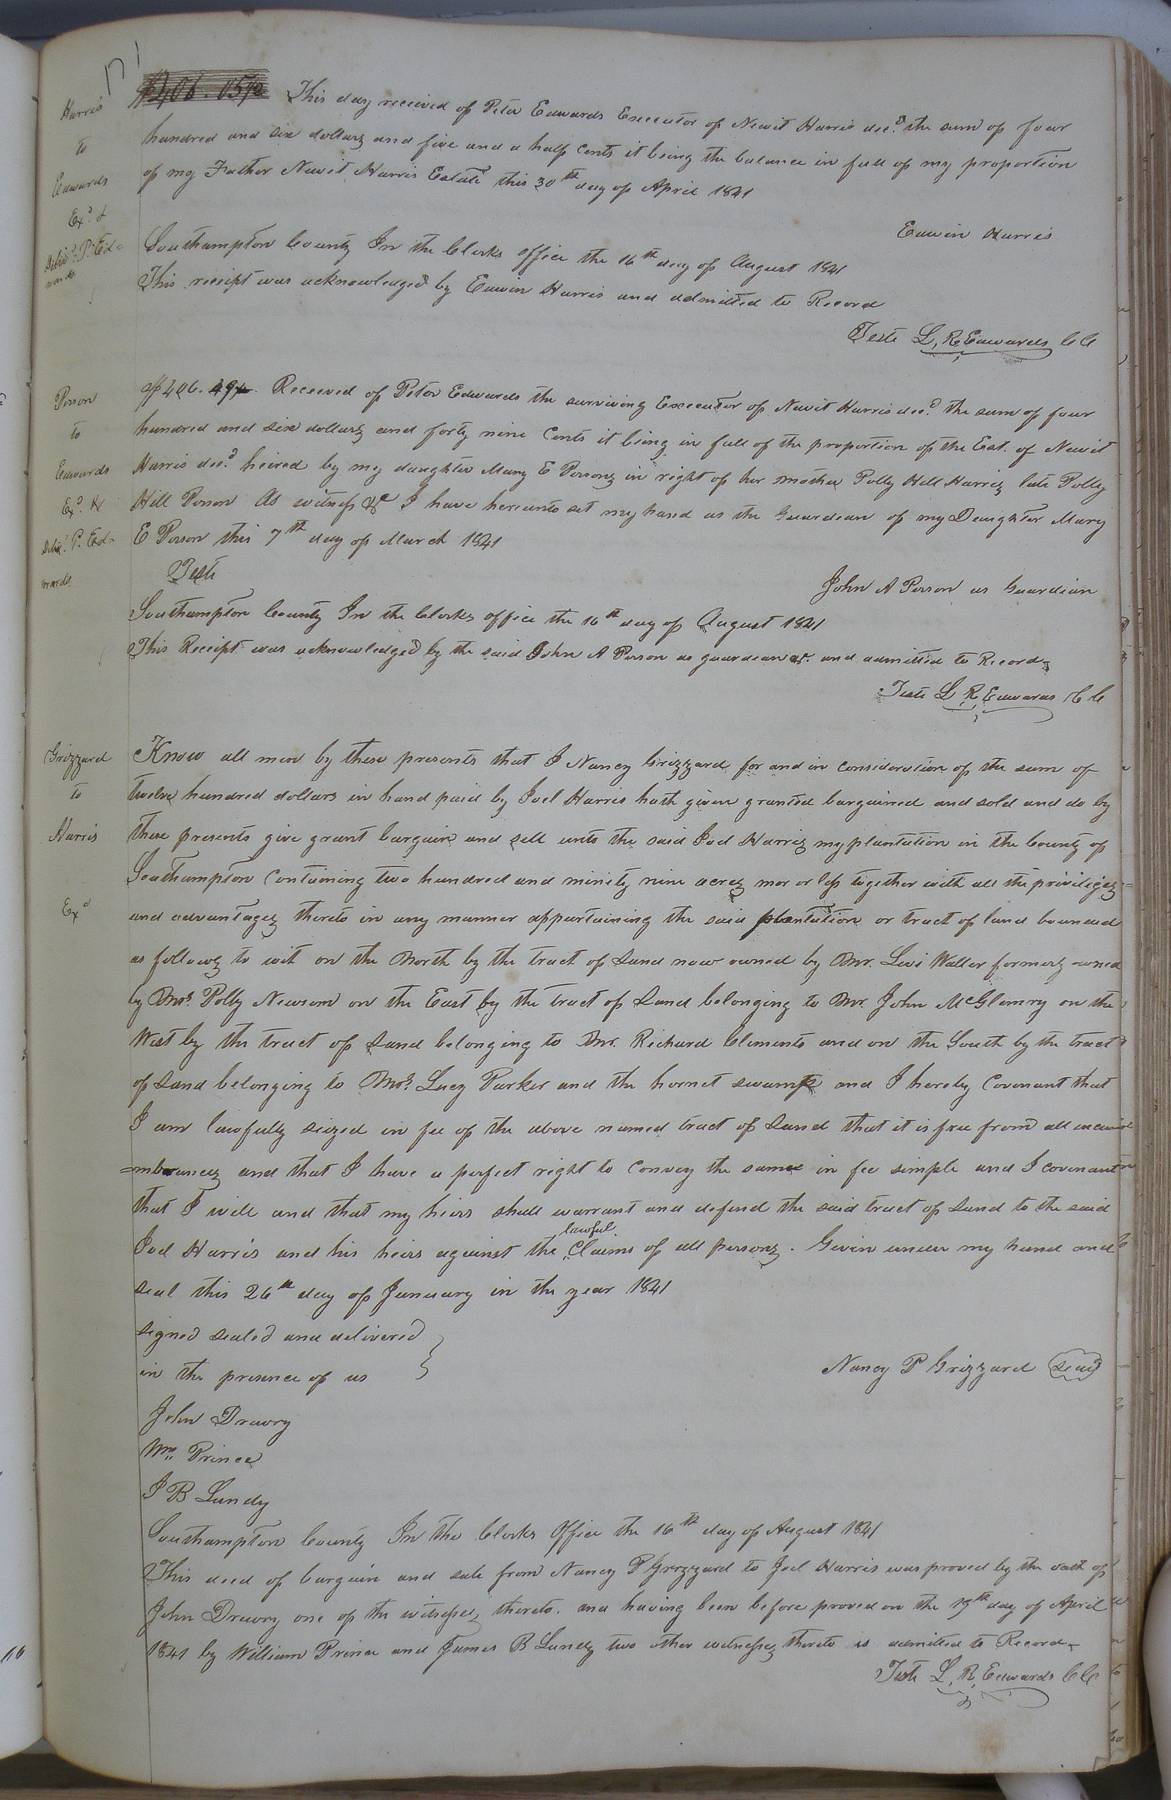 Harris
to
Edwards
Exd &
Delivd P. Ed-
wards
$406.05½ This day received of Peter Edwards Executor of Newit Harris decd the sum of four
hundred and six dollars and five and a half cents it being the balance in full of my proportion
of my Father Newit Harris Estate this 30th day of April 1841
Edwin Harris
Southampton County In the Clerks office the 16th day of August 1841
This receipt was acknowledged by Edwin Harris and admitted to Record
Teste L. R. Edwards CC
Person
to
Edwards
Exd &
Delid P. Ed-
wards
$406.49 Received of Peter Edwards the surviving Executor of Newit Harris decd the sum of four
hundred and six dollars and forty nine Cents it being in full of the proportion of the Est. of Newit
Harris decd heired by my daughter Mary E Persons in right of her mother Polly Hill Harris late Polly
Hill Person As witness &c I have hereunto set my hand as the Guardian of my Daughter Mary
E Person this 7th day of March 1841
Teste
John A Person as Guardian
Southampton County In the Clerks office the 16th day of August 1841
This Receipt was acknowledged by the said John A Person as guardian &c. and admitted to Record
Teste L R Edwards CC
Grizzard
to
Harris
Exd
Know all men by these presents that I Nancy Grizzard for and in consideration of the sum of
twelve hundred dollars in hand paid by Joel Harris hath given granted bargained and sold and do by
these presents give grant bargain and sell unto the said Joel Harris my plantation in the County of
Southampton Containing two hundred and ninity nine acres mor or less together with all the priviliges
and advantages thereto in any manner appertaining the said plantation or tract of land bounded
as follows to wit on the North by the tract of Land now owned by Mr. Levi Waller formerly owned
by Mrs. Polly Newsom on the East by the tract of Land belonging to Mr. John McGlemry on the
West by the tract of Land belonging to Mr. Richard Clements and on the South by the tract
of Land belonging to Mrs. Lucy Parker and the hornet swamp and I hereby Covenant that
I am lawfully seized in fee of the above named tract of Land that it is free from all incum
=mbrances and that I have a perfect right to convey the same in fee simple and I covenant
that I will and that my heirs shall warrant and defend the said tract of Land to the said
Joel Harris and his heirs against the lawful Claims of all persons. Given under my hand and
seal this 26th day of January in the year 1841
signed sealed and delivered
in the presence of us
Nancy P Grizzard seal
John Drewry
Wm Prince
J B Lundy
Southampton County In the Clerks Office the 16th day of August 1841
This deed of bargain and sale from Nancy P Grizzard to Joel Harris was proved by the oath of
John Drewry one of the witnesses thereto. and having been before proved on the 19th day of April
1841 by William Prince and James B Lundy two other witnesses thereto is admitted to Record
Teste L. R. Edwards CC